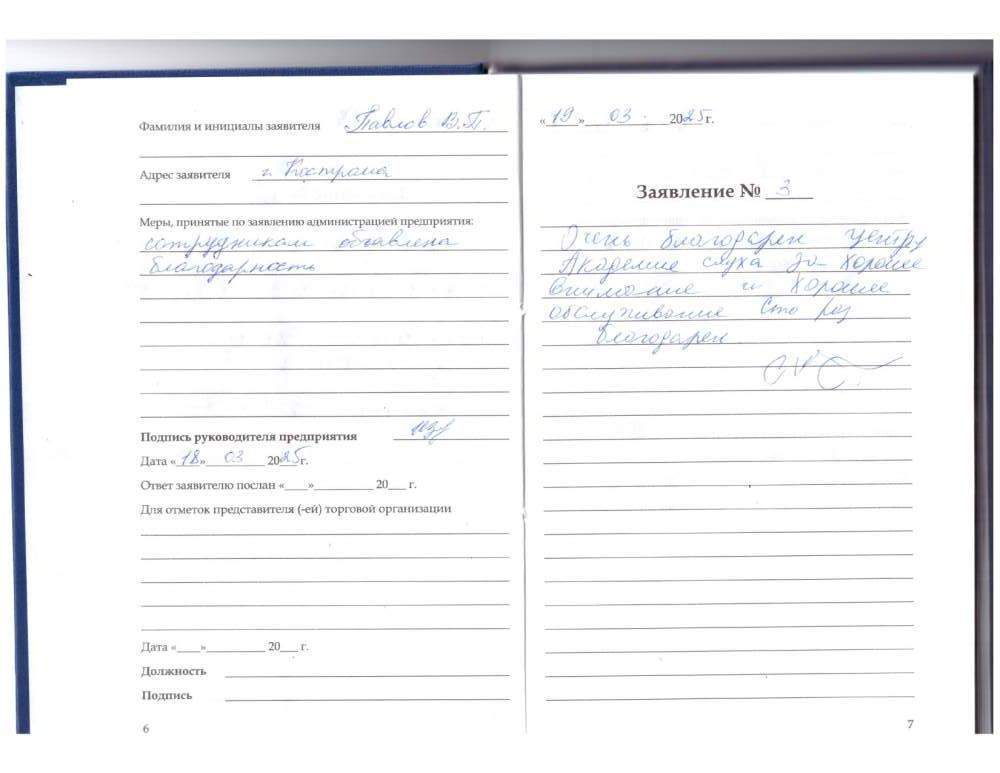 Фамилия и инициалы заявителя Павлов В.П.
Адрес заявителя г. Кострома
Меры, принятые по заявлению администрацией предприятия:
сотрудникам объявлена
благодарность
Подпись руководителя предприятия
Дата «18» 03 2025г.
Ответ заявителю послан «____»__________ 20___ г.
Для отметок представителя (-ей) торговой организации
Дата «____»__________ 20___ г.
Должность
Подпись
6
«19» 03. 2025г.
Заявление № 3
Очень благодарен центру
Академие слуха за хорошее
внимание и хорошее
обслуживание Сто раз
благодарен.
7